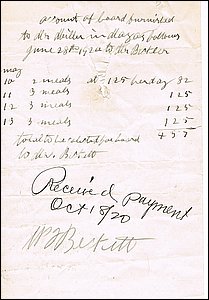 account of board furnished
to Mr Miller in May as follows
June 28th 1920 to Mrs Beskett
may
10 2 meals at 125 per day 82
11 3 meals 125
12 3 meals 125
13 3 meals 125
total to be collected for board 457
to Mrs. Beskett
Received Payment
Oct 18/20
Beskett